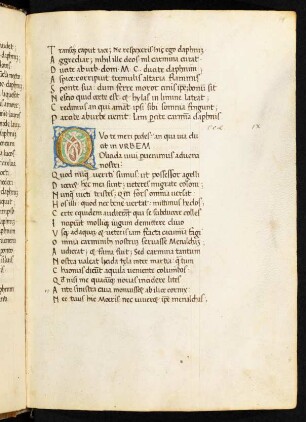 Transq; caput iace; Ne respexeris. His ego daphnim
Aggrediar; nihil ille deos nil carmina curat.
Ducite ab urbe dom. M. C. ducite daphnim;
Aspice corripuit tremulis altaria flammis
Sponte sua dum ferre moror cinis ipse; bonum sit
Nescio quid certe est et hylas in limine latrat;
Credimus an qui amant ipsi sibi somnia fingunt;
Parcite ab urbe venit iam parcite carmina daphnis
Quo te meri pedes? an qua via du
cit in URBEM
O licida vivi pervenimus advena
nostri
Quod nunq; veriti sumus ut possessor agelli
Diceret hec mea sunt; veteres migrate coloni;
Nunc victi tristes; Qm fors omnia versat
Hos illi quod nec bene vertat mittimus hedos;
Certe equidem audieram qua se subducere colles
Incipiunt mollique iugum demittere clivo
Usq; adaquam et veteris iam fracta cacumina fagi
Omnia carminibus nostrum servasse Menalcam;
Audieras; et fama fuit; Sed carmina tantum
Nostra valent licida tela inter martia quantum
Chaonias dicunt aquila veniente columbas;
Quod nisi me quacunq; novas incidere lites
Ante sinistra cava monuisset ab ilice cornix
Nec tuus hic Moeris nec viveret ipse menalcas;